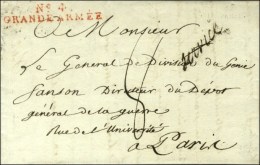 No. 4.
GRANDE-ARMÉE
A Monsieur
Service
Le General de Division du Genie
Sanson Directeur du Dépôt
général de la guerre
Rue de l'Université
a Paris